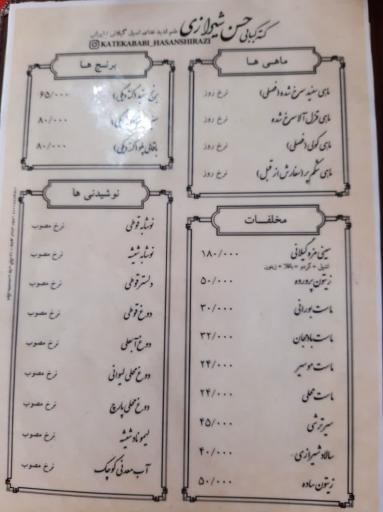 کته کبابی حسن شیرازی
KATEKABABI_HASANSHIRAZI
ماهی ها
ماهی سفید سرخ شده (فصلی) نرخ روز
ماهی قزل آلا سرخ شده نرخ روز
ماهی کولی (فصلی) نرخ روز
ماهی شکم پر (سفارش از قبل) نرخ روز
مخلفات
سینی مزه گیلانی ۱۸۰/۰۰۰
زیتون پرورده ۵۰/۰۰۰
ماست بورانی ۳۰/۰۰۰
ماست بادمجان ۳۲/۰۰۰
ماست موسیر ۲۴/۰۰۰
ماست محلی ۲۴/۰۰۰
سیر ترشی ۴۵/۰۰۰
سالاد شیرازی ۴۰/۰۰۰
زیتون ساده ۵۰/۰۰۰
برنج ها
۶۵/۰۰۰
۸۰/۰۰۰
باقالی پلو ۸۰/۰۰۰
نوشیدنی ها
نوشابه قوطی نرخ مصوب
نوشابه شیشه نرخ مصوب
دلستر قوطی نرخ مصوب
دوغ قوطی نرخ مصوب
دوغ آبعلی نرخ مصوب
دوغ محلی لیوانی نرخ مصوب
دوغ محلی پارچ نرخ مصوب
لیموناد شیشه نرخ مصوب
آب معدنی کوچک نرخ مصوب